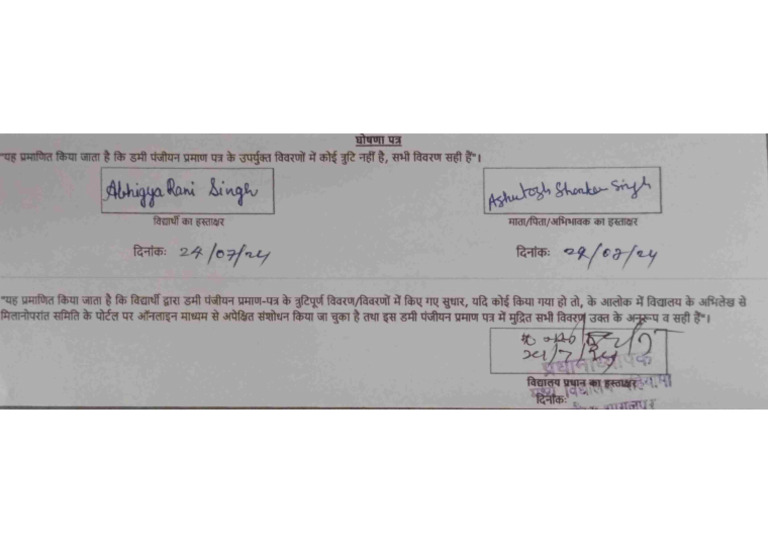 घोषणा पत्र
"यह प्रमाणित किया जाता है कि डमी पंजीयन प्रमाण पत्र के उपर्युक्त विवरणों में कोई त्रुटि नहीं है, सभी विवरण सही हैं"।
Abhigya Rani Singh
Ashutosh Shanker Singh
विद्यार्थी का हस्ताक्षर
माता/पिता/अभिभावक का हस्ताक्षर
दिनांकः 24/07/24
दिनांकः 24/07/24
"यह प्रमाणित किया जाता है कि विद्यार्थी द्वारा डमी पंजीयन प्रमाण-पत्र के त्रुटिपूर्ण विवरण/विवरणों में किए गए सुधार, यदि कोई किया गया हो तो, के आलोक में विद्यालय के अभिलेख से
मिलानोपरांत समिति के पोर्टल पर ऑनलाइन माध्यम से अपेक्षित संशोधन किया जा चुका है तथा इस डमी पंजीयन प्रमाण पत्र में मुद्रित सभी विवरण उक्त के अनुरूप व सही हैं"।
प्रधानाध्यापक
विद्यालय प्रधान का हस्ताक्षर
मध्य विद्यालय
दिनांकः
भागलपुर